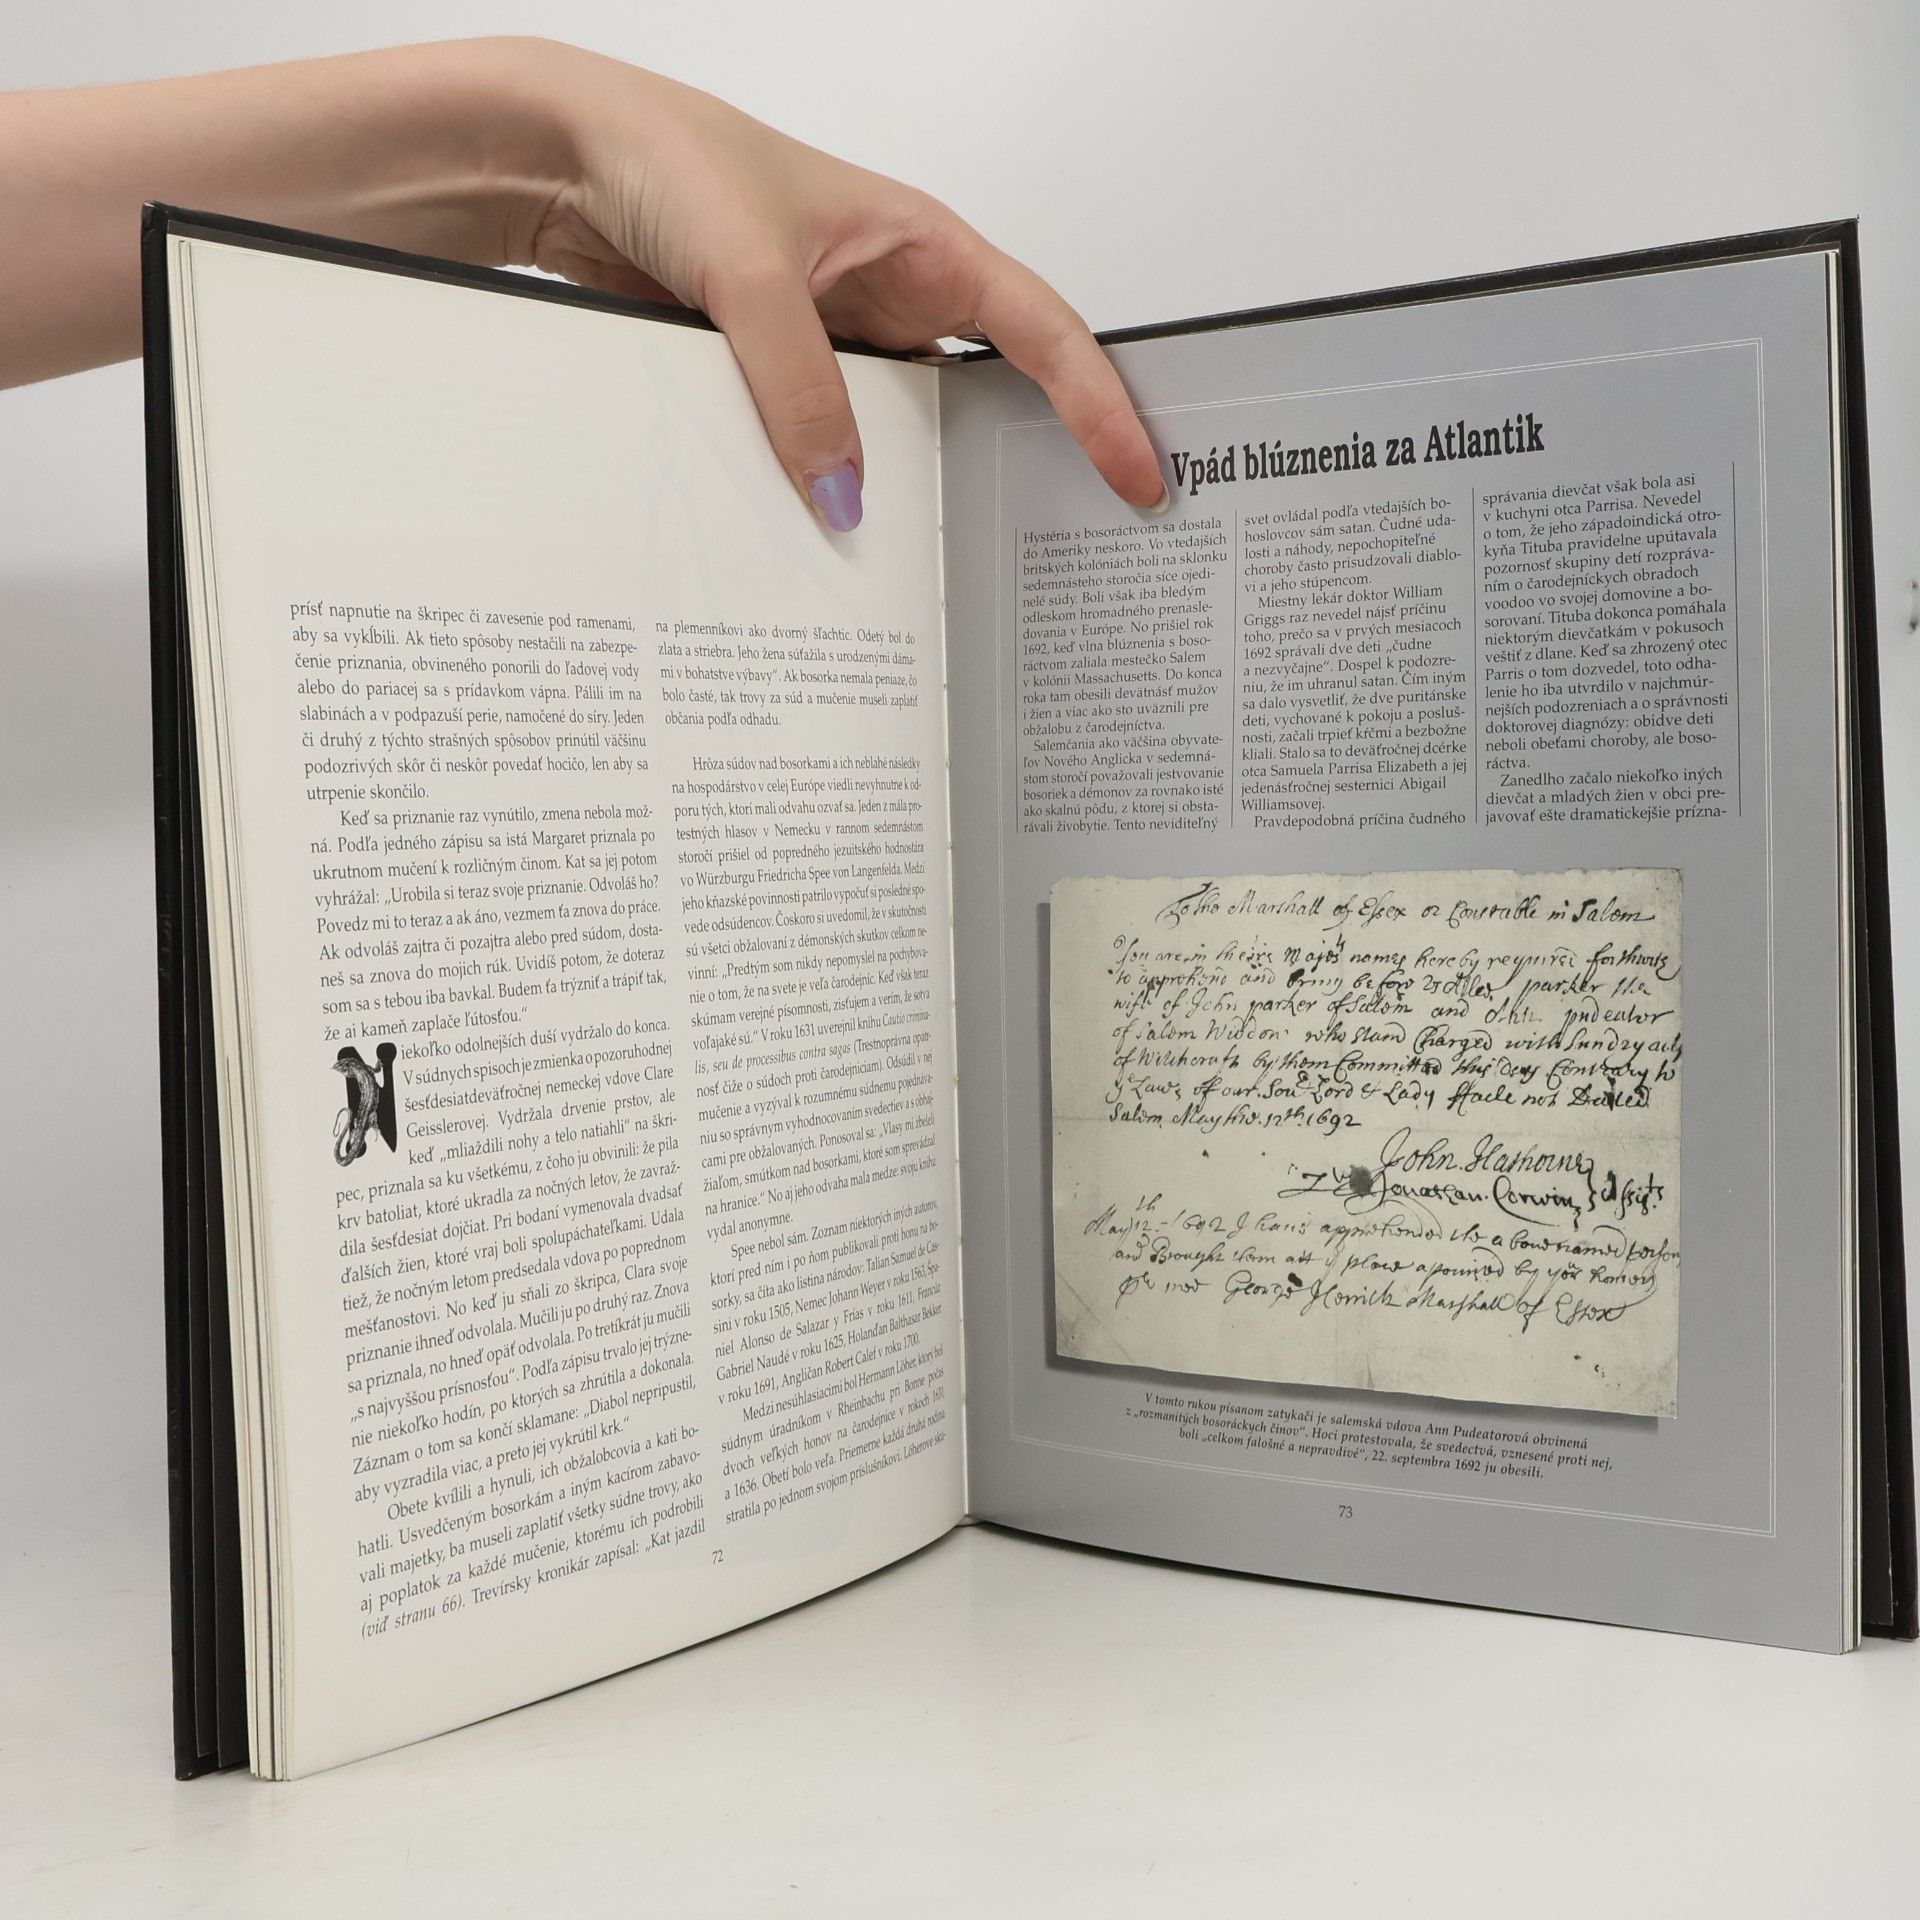 prísť napnutie na škripec či zavesenie pod ramenami,
aby sa vykĺbili. Ak tieto spôsoby nestačili na zabezpe-
čenie priznania, obvineného ponorili do ľadovej vody
alebo do pariacej sa s prídavkom vápna. Pálili im na
slabinách a v podpazuší perie, namočené do síry. Jeden
či druhý z týchto strašných spôsobov prinútil väčšinu
podozrivých skôr či neskôr povedať hocičo, len aby sa
utrpenie skončilo.
Keď sa priznanie raz vynútilo, zmena nebola mož-
ná. Podľa jedného zápisu sa istá Margaret priznala po
ukrutnom mučení k rozličným činom. Kat sa jej potom
vyhrážal: „Urobila si teraz svoje priznanie. Odvoláš ho?
Povedz mi to teraz a ak áno, vezmem ťa znova do práce.
Ak odvoláš zajtra či pozajtra alebo pred súdom, dosta-
neš sa znova do mojich rúk. Uvidíš potom, že doteraz
som sa s tebou iba bavkal. Budem ťa trýzniť a trápiť tak,
že ai kameň zaplače ľútosťou."
Niekoľko odolnejších duší vydržalo do konca.
V súdnych spisoch je zmienka o pozoruhodnej
šesťdesiatdeväťročnej nemeckej vdove Clare
Geisslerovej. Vydržala drvenie prstov, ale
keď „mliaždili nohy a telo natiahli" na škri-
pec, priznala sa ku všetkému, z čoho ju obvinili: že pila
krv batoliat, ktoré ukradla za nočných letov, že zavraž-
dila šesťdesiat dojčiat. Pri bodaní vymenovala dvadsať
ďalších žien, ktoré vraj boli spolupáchateľkami. Udala
tiež, že nočným letom predsedala vdova po poprednom
mešťanostovi. No keď ju sňali zo škripca, Clara svoje
priznanie ihneď odvolala. Mučili ju po druhý raz. Znova
sa priznala, no hneď opäť odvolala. Po tretíkrát ju mučili
„s najvyššou prísnosťou". Podľa zápisu trvalo jej trýzne-
nie niekoľko hodín, po ktorých sa zhrútila a dokonala.
Záznam o tom sa končí sklamane: „Diabol nepripustil,
aby vyzradila viac, a preto jej vykrútil krk."
Obete kvílili a hynuli, ich obžalobcovia a kati bo-
hatli. Usvedčeným bosorkám a iným kacírom zabavo-
vali majetky, ba museli zaplatiť všetky súdne trovy, ako
aj poplatok za každé mučenie, ktorému ich podrobili
(viď stranu 66). Trevírsky kronikár zapísal: „Kat jazdil
na plemenníkovi ako dvorný šľachtic. Odetý bol do
zlata a striebra. Jeho žena súťažila s urodzenými dáma-
mi v bohatstve výbavy". Ak bosorka nemala peniaze, čo
bolo časté, tak trovy za súd a mučenie museli zaplatiť
občania podľa odhadu.
Hrôza súdov nad bosorkami a ich neblahé následky
na hospodárstvo v celej Európe viedli nevyhnutne k od-
poru tých, ktorí mali odvahu ozvať sa. Jeden z mála pro-
testných hlasov v Nemecku v rannom sedemnástom
storočí prišiel od popredného jezuitského hodnostára
vo Würzburgu Friedricha Spee von Langenfelda. Medzi
jeho kňazské povinnosti patrilo vypočuť si posledné spo-
vede odsúdencov. Čoskoro si uvedomil, že v skutočnosti
sú všetci obžalovaní z démonských skutkov celkom ne-
vinní: „Predtým som nikdy nepomyslel na pochybova-
nie o tom, že na svete je veľa čarodejníc. Keď však teraz
skúmam verejné písomnosti, zisťujem a verím, že sotva
voľajaké sú." V roku 1631 uverejnil knihu Cautio crimina-
lis, seu de processibus contra sagas (Trestnoprávna opatr-
nosť čiže o súdoch proti čarodejniciam). Odsúdil v nej
mučenie a vyzýval k rozumnému súdnemu pojednáva-
niu so správnym vyhodnocovaním svedectiev a s obhaj-
cami pre obžalovaných. Ponosoval sa: „Vlasy mi zbeleli
žiaľom, smútkom nad bosorkami, ktoré som sprevádzal
na hranice." No aj jeho odvaha mala medze: svoju knihu
vydal anonymne.
Spee nebol sám. Zoznam niektorých iných autorov,
ktorí pred ním i po ňom publikovali proti honu na bo-
sorky, sa číta ako listina národov: Talian Samuel de Cas-
sini v roku 1505, Nemec Johann Weyer v roku 1563, Špa-
niel Alonso de Salazar y Frías v roku 1611, Francúz
Gabriel Naudé v roku 1625, Holanďan Balthasar Bekker
v roku 1691, Angličan Robert Calef v roku 1700.
Medzi nesúhlasiacimi bol Hermann Löher, ktorý bol
súdnym úradníkom v Rheinbachu pri Bonne počas
dvoch veľkých honov na čarodejnice v rokoch 1631
a 1636. Obetí bolo veľa. Priemerne každá druhá rodina
stratila po jednom svojom príslušníkovi. Löherove sku-
72
Vpád blúznenia za Atlantik
Hystéria s bosoráctvom sa dostala
do Ameriky neskoro. Vo vtedajších
britských kolóniách boli na sklonku
sedemnásteho storočia síce ojedi-
nelé súdy. Boli však iba bledým
odleskom hromadného prenasle-
dovania v Európe. No prišiel rok
1692, keď vlna blúznenia s boso-
ráctvom zaliala mestečko Salem
v kolónii Massachusetts. Do konca
roka tam obesili devätnásť mužov
i žien a viac ako sto uväznili pre
obžalobu z čarodejníctva.
Salemčania ako väčšina obyvate-
ľov Nového Anglicka v sedemná-
stom storočí považovali jestvovanie
bosoriek a démonov za rovnako isté
ako skalnú pôdu, z ktorej si obsta-
rávali živobytie. Tento neviditeľný
svet ovládal podľa vtedajších bo-
hoslovcov sám satan. Čudné uda-
losti a náhody, nepochopiteľné
choroby často prisudzovali diablo-
vi a jeho stúpencom.
Miestny lekár doktor William
Griggs raz nevedel nájsť príčinu
toho, prečo sa v prvých mesiacoch
1692 správali dve deti „čudne
a nezvyčajne". Dospel k podozre-
niu, že im uhranul satan. Čím iným
sa dalo vysvetliť, že dve puritánske
deti, vychované k pokoju a posluš-
nosti, začali trpieť kŕčmi a bezbožne
kliali. Stalo sa to deväťročnej dcérke
otca Samuela Parrisa Elizabeth a jej
jedenásťročnej sesternici Abigail
Williamsovej.
Pravdepodobná príčina čudného
správania dievčat však bola asi
v kuchyni otca Parrisa. Nevedel
o tom, že jeho západoindická otro-
kyňa Tituba pravidelne upútavala
pozornosť skupiny detí rozpráva-
ním o čarodejníckych obradoch
voodoo vo svojej domovine a bo-
sorovaní. Tituba dokonca pomáhala
niektorým dievčatkám v pokusoch
veštiť z dlane. Keď sa zhrozený otec
Parris o tom dozvedel, toto odha-
lenie ho iba utvrdilo v najchmúr-
nejších podozreniach a o správnosti
doktorovej diagnózy: obidve deti
neboli obeťami choroby, ale boso-
ráctva.
Zanedlho začalo niekoľko iných
dievčat a mladých žien v obci pre-
javovať ešte dramatickejšie prízna-
To the Marshall of Essex or Constable in Salem
You are in theire Majests names hereby required forthwith
to apprehend and bring before us Allce parker the
wife of John parker of Salem and Ann pudeator
of Salem Widdow who stand Charged with sundry acts
of Witchcraft by them Committed this day Contrary to
ye Laws of our Sou Lord & Lady faile not Dated
Salem May the 12th 1692
John Hathorne
Jonathan Corwin Assists
May 12th 1692 I have apprehended the above named person
and Brought them att ye place apointed by your honors
Pr mee George Herrick Marshall of Essex
V tomto rukou písanom zatykači je salemská vdova Ann Pudeatorová obvinená
z „rozmanitých bosoráckych činov". Hoci protestovala, že svedectvá, vznesené proti nej,
boli „celkom falošné a nepravdivé", 22. septembra 1692 ju obesili.
73